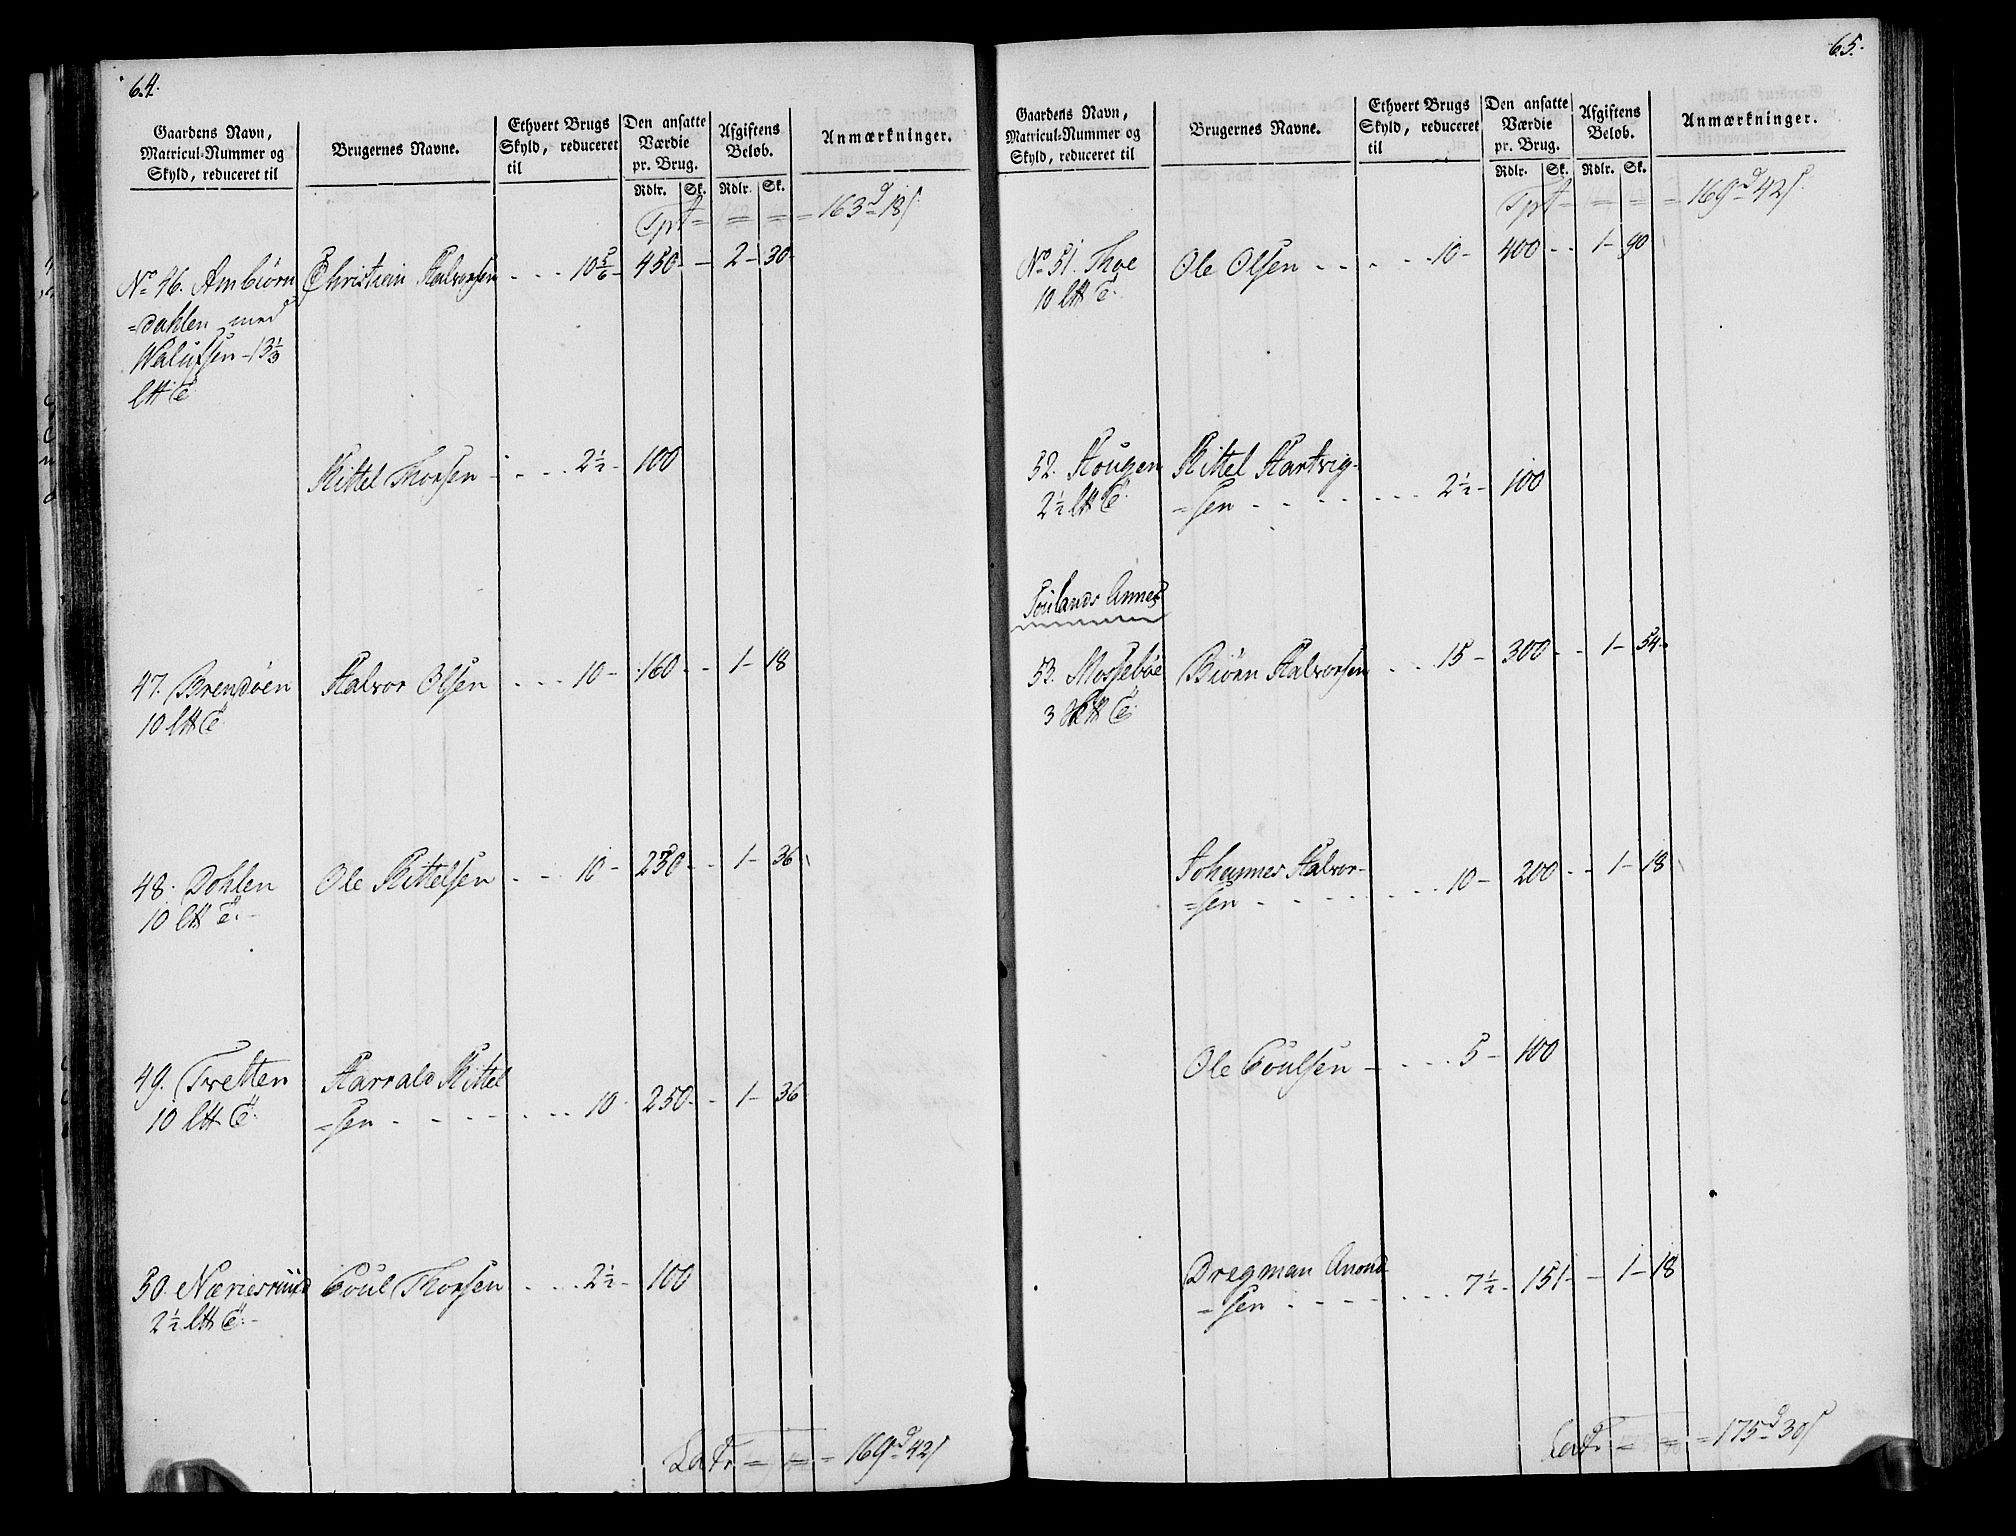 64.
Gaardens Navn, Matricul-Nummer og Skyld, reduceret til
Brugernes Navne.
Ethvert Brugs Skyld, reduceret til
Den ansatte Værdie pr. Brug.
Afgiftens Beløb.
Anmærkninger.
Rdlr. Sk. Rdlr. Sk.
Tpt = = = = 163 d 18 s
No 46. Ambiørn Christian Halvorsen - - - 10 5/6 - 450 - - 2 - 30 -
=dahlen med
Walufsen - 13 1/3
Kittel Thorsen - - - - 2 1/2 - 100
47. Brendøen Halvor Olsen - - - 10 - 160 - - 1 - 18
10
48. Dohlen Ole Kittelsen - - - 10 - 250 - - 1 - 36
10
49. Tvetten Harrald Kittel
10 =sen - - - - - - 10 - 250 - - 1 - 36
50. Næriesruud Poul Thorsen - - - 2 1/2 - 100
2 1/2
= = = 169 d 42 s
65.
Gaardens Navn, Matricul-Nummer og Skyld, reduceret til
Brugernes Navne.
Ethvert Brugs Skyld, reduceret til
Den ansatte Værdie pr. Brug.
Afgiftens Beløb.
Anmærkninger.
Rdlr. Sk. Rdlr. Sk.
Tpt = = = = 169 d 42 s
No 51. Thoe Ole Olsen - - - - 10 - 400 - - 1 - 90
10
52. Hougen Kittel Hartvig-
2 1/2 =sen - - - - - - 2 1/2 - 100
53. Mossebøe Biørn Halvorsen - - 15 - 300 - - 1 - 54
3
Johannes Halvor-
=sen - - - - - - 10 - 200 - - 1 - 18
Ole Poulsen - - - - 5 - 100
Dregman Anond-
=sen - - - - - - 7 1/2 - 151 - - 1 - 18
= = = 175 d 30 s